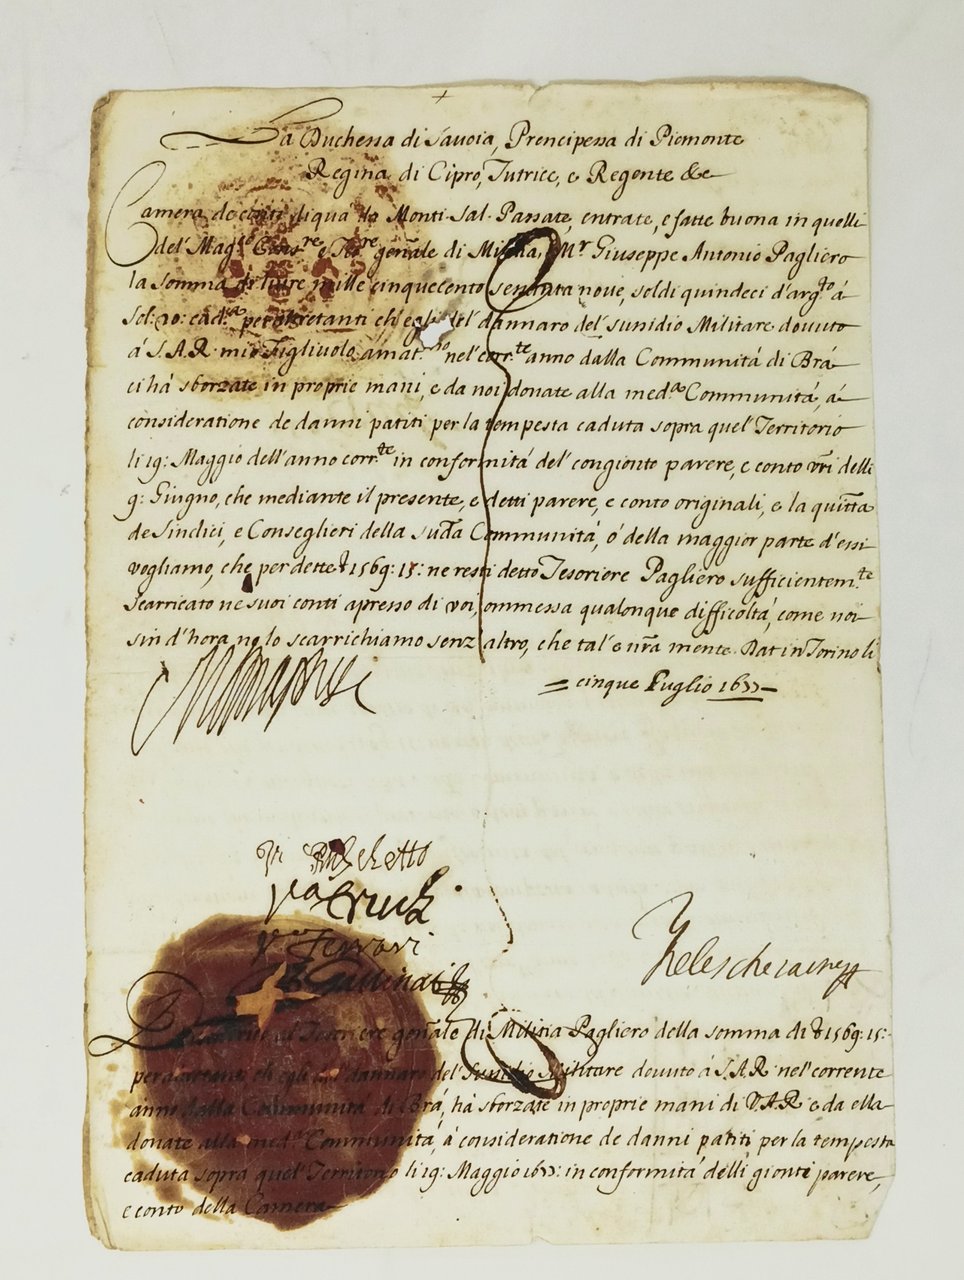 La Duchessa di Savoia, Prencipessa di Piemonte
Regina di Cipro, Tutrice, e Regente &c
Camera de conti di quà da Monti. Sal. Passate, entrate, e fatte buona in quelli
del Mag.co Cons.re e Th.re gen̄ale di Militia, M.r Giuseppe Antonio Pagliero
la somma di livre mille cinquecento sessanta nove, soldi quindeci d'arg.to á
sol: 20: cad.a per altretanti ch'egli del dannaro del sussidio Militare dovuto
á S.A.R. mio Figliuolo amat.mo nel corr.te anno dalla Communitá di Brá
ci há sborzate in proprie mani, e da noi donate alla med.a Communitá, á
consideratione de danni patiti per la tempesta caduta sopra quel Territorio
li 19: Maggio dell'anno corr.te in conformitá del congionto parere, e conto vr̄i delli
9: Giugno, che mediante il presente, e detti parere, e conto originali, e la quitt̄a
de Sindici, e Conseglieri della sud̄a Communitá, ó della maggior parte d'essi
vogliamo, che per dette ₶ 1569: 15: ne resti detto Tesoriere Pagliero sufficientem.te
scarricato ne suoi conti apresso di voi, ommessa qualonque difficoltá, come noi
sin d'hora ne lo scarrichiamo senz'altro, che tal'e nr̄a mente. Dat in Torino li
= cinque Luglio 1677
V.a Ferrari
il Tesoriere gen̄ale di Militia Pagliero della somma di ₶ 1569: 15:
per altretanti ch'egli del dannaro del Sussidio Militare dovuto á S.A.R. nel corrente
anno dalla Communitá di Brá, há sborzate in proprie mani di V.A.R. e da ella
donate alla med.a Communitá, á consideratione de danni patiti per la tempesta
caduta sopra quel Territorio li 19: Maggio 1677: in conformitá delli gionti parere,
e conto della Camera